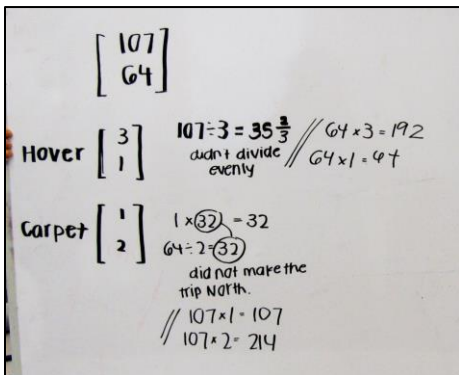 [107
64]
Hover [3
1] 107÷3 = 35 2/3 // 64×3=192
didn't divide evenly // 64×1=64
Carpet [1
2] 1×32 = 32
64÷2=32
did not make the
trip North.
// 107×1=107
107×2=214